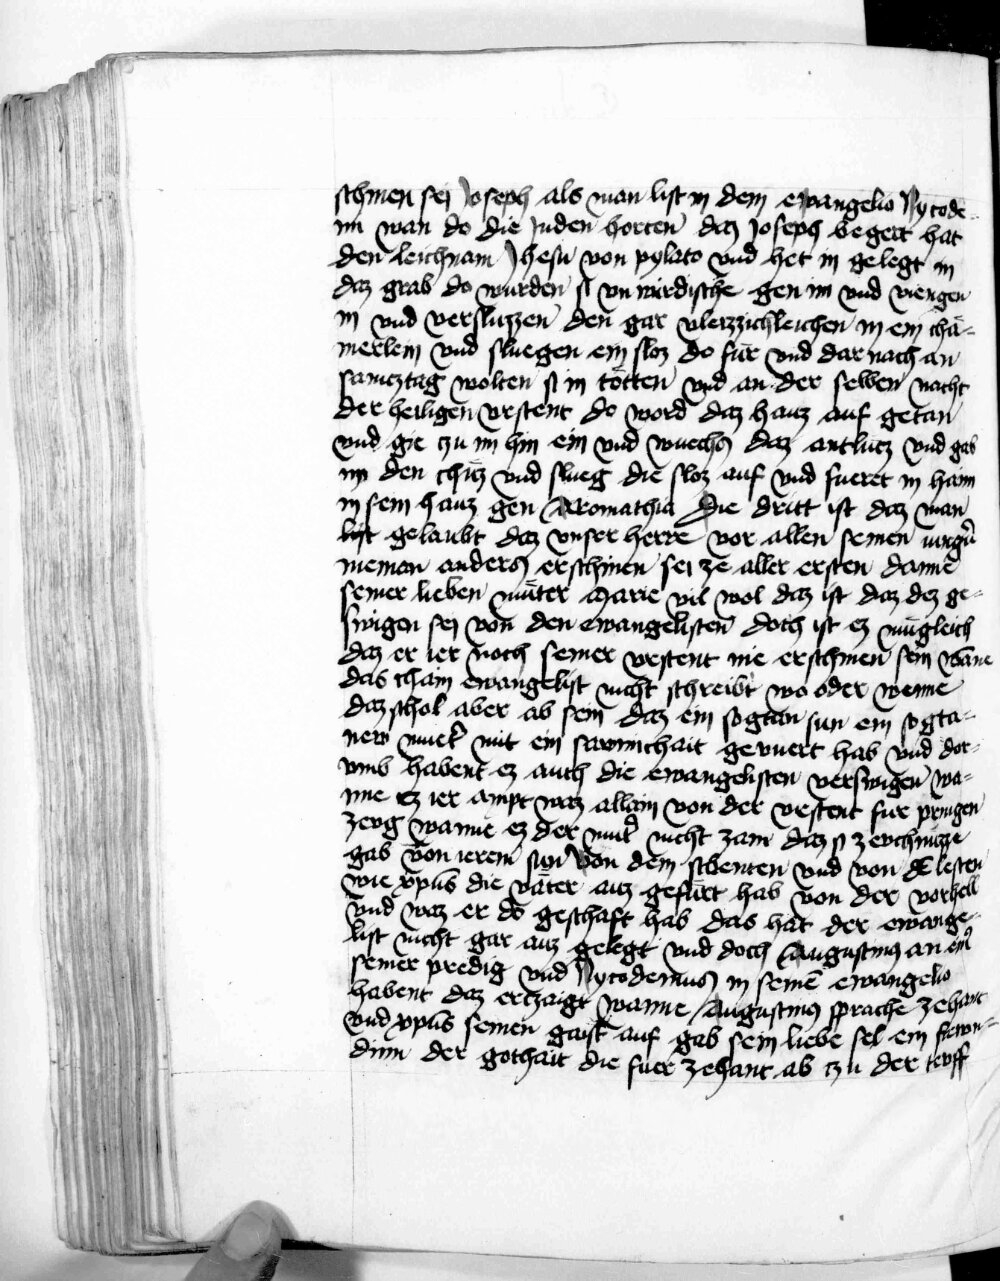 schinen sej Joseph als man list in dem ewangelio Nycode-
im wan do die Juden horten daz Joseph begert hat
den leichnam Jhesu von pylato vnd het in gelegt in
daz grab do wurden si vnwirdische gen im vnd viengen
in vnd versluzzen den gar vleizzichleichen in ein chä-
merlein vnd sluegen ein sloz do für vnd dar nach an
samcztag wolten si in tötten vnd an der selben nacht
der heiligen vrstent do word daz hauz auf getan
vnd gie czu im hin ein vnd wuechs daz antlucz vnd gab
im den chüz vnd slueg die sloz auf vnd fueret in haim
in sein hauz gen Aromathia Die dritt ist daz man
list gelaubt daz vnser herre vor allen seinen
nieman anders erschinen sei ze aller ersten danne
seiner lieben müter Marie vil wol daz ist daz dez ge-
swigen sej von den ewangelisten doch ist ez mügleich
daz er ier noch seiner vrstent nie erschinen sein wane
das chain ewangelist nicht schreibt wo oder wenne
daz schol aber ab sein daz ein sogtan sun ein sogta-
new muet̉ mit ein sawmichait gevnert hab vnd dor-
vmb habent ez auch die ewangelisten verswigen wa-
nne ez ier ampt waz allain von der vrstent für pringen
zevg wanne ez der mut̉ nicht zam daz si zevchnüzze
gab von ierem sun Von dem sibenten vnd von dē lesten
wie xp̄us die väter auz gefürt hab von der vorhell
vnd waz er do geschaft hab das hat der ewange-
list nicht gar auz gelegt vnd doch Augustinus an ein̉
seiner predig vnd Nycodemus in seinē ewangelio
habent daz erczaigt wanne Augustinus sprache zehant
vnd xp̄us seinen gaist auf gab sein liebe sel ein frewn-
dinn der gothait die fuer zehant ab czu der teuff